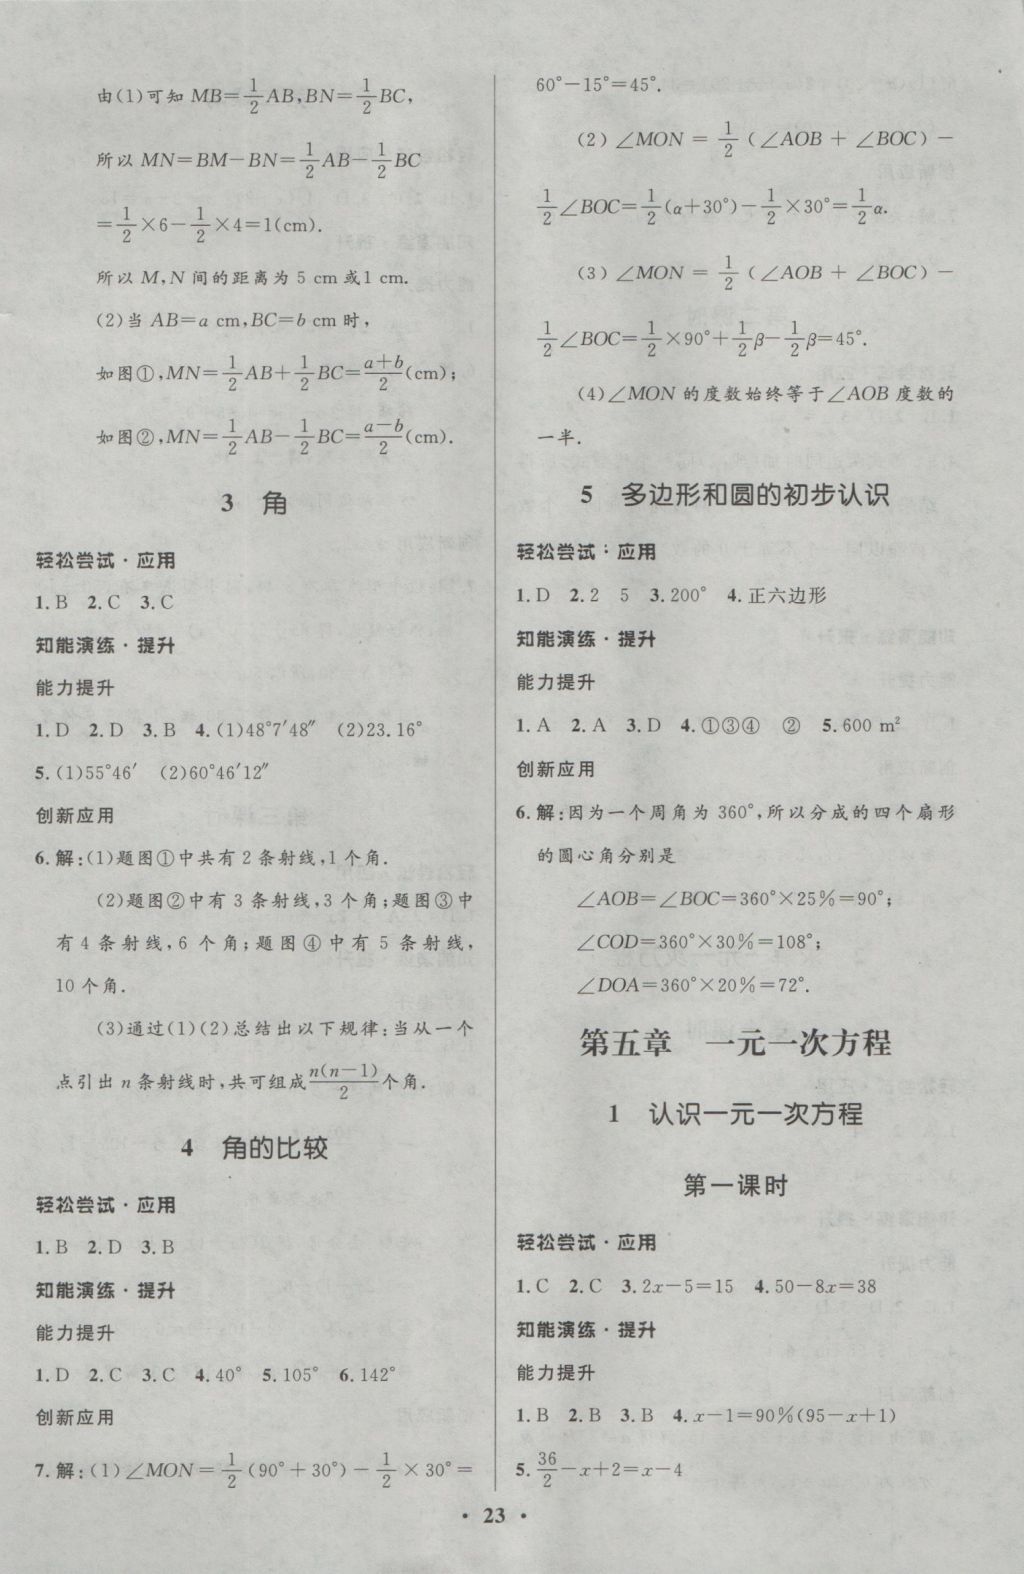 由(1)可知 MB=1/2 AB,BN=1/2 BC,
所以 MN=BM-BN=1/2 AB-1/2 BC
=1/2×6-1/2×4=1(cm).
所以 M,N 间的距离为 5 cm 或1 cm.
(2)当 AB=a cm,BC=b cm 时,
如图①,MN=1/2 AB+1/2 BC=(a+b)/2(cm);
如图②,MN=1/2 AB-1/2 BC=(a-b)/2(cm).
3 角
轻松尝试·应用
1.B 2.C 3.C
知能演练·提升
能力提升
1.D 2.D 3.B 4.(1)48°7′48″ (2)23.16°
5.(1)55°46′ (2)60°46′12″
创新应用
6.解:(1)题图①中共有 2 条射线,1 个角.
(2)题图②中有 3 条射线,3 个角;题图③中
有 4 条射线,6 个角;题图④中有 5 条射线,
10 个角.
(3)通过(1)(2)总结出以下规律:当从一个
点引出 n 条射线时,共可组成 n(n-1)/2 个角.
4 角的比较
轻松尝试·应用
1.B 2.D 3.B
知能演练·提升
能力提升
1.D 2.C 3.C 4.40° 5.105° 6.142°
创新应用
7.解:(1)∠MON=1/2(90°+30°)-1/2×30°=
60°-15°=45°.
(2)∠MON=1/2(∠AOB+∠BOC)-
1/2∠BOC=1/2(α+30°)-1/2×30°=1/2α.
(3)∠MON=1/2(∠AOB+∠BOC)-
1/2∠BOC=1/2×90°+1/2β-1/2β=45°.
(4)∠MON 的度数始终等于∠AOB 度数的
一半.
5 多边形和圆的初步认识
轻松尝试·应用
1.D 2.2 5 3.200° 4.正六边形
知能演练·提升
能力提升
1.A 2.A 3.D 4.①③④ ② 5.600 m²
创新应用
6.解:因为一个周角为 360°,所以分成的四个扇形
的圆心角分别是
∠AOB=∠BOC=360°×25%=90°;
∠COD=360°×30%=108°;
∠DOA=360°×20%=72°.
第五章 一元一次方程
1 认识一元一次方程
第一课时
轻松尝试·应用
1.C 2.C 3.2x-5=15 4.50-8x=38
知能演练·提升
能力提升
1.B 2.B 3.B 4.x-1=90%(95-x+1)
5.36/2-x+2=x-4
· 23 ·